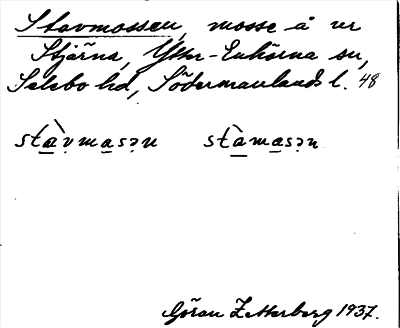 Stavmossen, mosse å ur
Stjärna, Ytter-Enhörna sn,
Selebo hd, Södermanlands l. 48
stàvmasən stàmasən
Göran Zetterberg 1937.